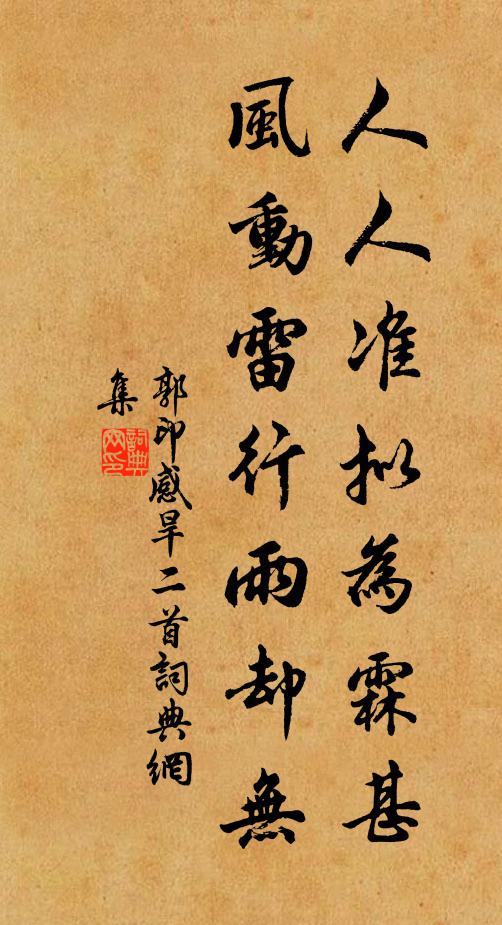 人人准拟為霖甚
風動雷行雨却無
郭印感旱二首詞典網
集
詞典
网印